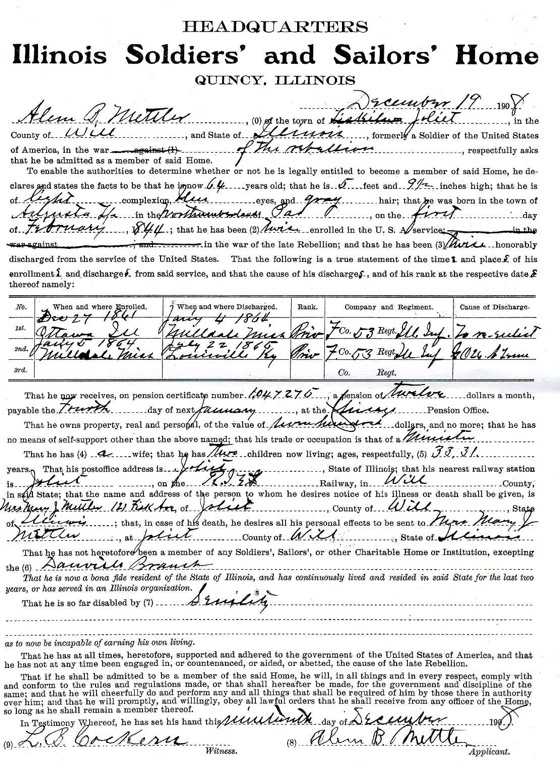 HEADQUARTERS
Illinois Soldiers' and Sailors' Home
QUINCY, ILLINOIS
December 19 1908
Alem B. Mettler, (0) of the town of Joliet, in the
County of Will, and State of Illinois, formerly a Soldier of the United States
of America, in the war against (1) of the rebellion, respectfully asks
that he be admitted as a member of said Home.
To enable the authorities to determine whether or not he is legally entitled to become a member of said Home, he de-
clares and states the facts to be that he is now 64 years old; that he is 5 feet and 9½ inches high; that he is
of light complexion, blue eyes, and gray hair; that he was born in the town of
Augusta Tp in Northumberland Pa, on the first day
of February 1844; that he has been (2) twice enrolled in the U. S. A. service; in the
war against; and in the war of the late Rebellion; and that he has been (3) twice honorably
discharged from the service of the United States. That the following is a true statement of the time and place of his
enrollment, and discharge from said service, and that the cause of his discharge, and of his rank at the respective date
thereof namely:
No. When and where Enrolled. When and where Discharged. Rank. Company and Regiment. Cause of Discharge.
Dec 27 1861 Jany 4 1864
1st. Ottawa Ill Milldale Miss Priv F Co. 53 Regt. Ill Inf. To re-enlist
Jany 5 1864 July 22 1865
2nd. Milldale Miss Louisville Ky Priv F Co. 53 Regt. Ill Inf
3rd. Co. Regt.
That he now receives, on pension certificate number 1,047,275, a pension of twelve dollars a month,
payable the Fourth day of next January, at the Chicago Pension Office.
That he owns property, real and personal, of the value of two hundred dollars, and no more; that he has
no means of self-support other than the above named; that his trade or occupation is that of a Minister
That he has (4) a wife; that he has two children now living; ages, respectively, (5) 33, 31.
years. That his postoffice address is Joliet, State of Illinois; that his nearest railway station
is Joliet, on the Railway, in Will County,
in said State; that the name and address of the person to whom he desires notice of his illness or death shall be given, is
Mrs Mary J Mettler, 121 Ave, of Joliet County of Will, State
of Illinois; that, in case of his death, he desires all his personal effects to be sent to Mrs. Mary J
Mettler, at Joliet County of Will, State of Illinois
That he has not heretofore been a member of any Soldiers', Sailors', or other Charitable Home or Institution, excepting
the (6) Danville Branch
That he is now a bona fide resident of the State of Illinois, and has continuously lived and resided in said State for the last two
years, or has served in an Illinois organization.
That he is so far disabled by (7) Senility
as to now be incapable of earning his own living.
That he has at all times, heretofore, supported and adhered to the government of the United States of America, and that
he has not at any time been engaged in, or countenanced, or aided, or abetted, the cause of the late Rebellion.
That if he shall be admitted to be a member of the said Home, he will, in all things and in every respect, comply with
and conform to the rules and regulations made, or that shall hereafter be made, for the government and discipline of the
same; and that he will cheerfully do and perform any and all things that shall be required of him by those there in authority
over him; and that he will promptly, and willingly, obey all lawful orders that he shall receive from any officer of the Home,
so long as he shall remain a member thereof.
In Testimony Whereof, he has set his hand this nineteenth day of December 1908
(9) L. B. Cockern (8) Alem B. Mettler
Witness. Applicant.